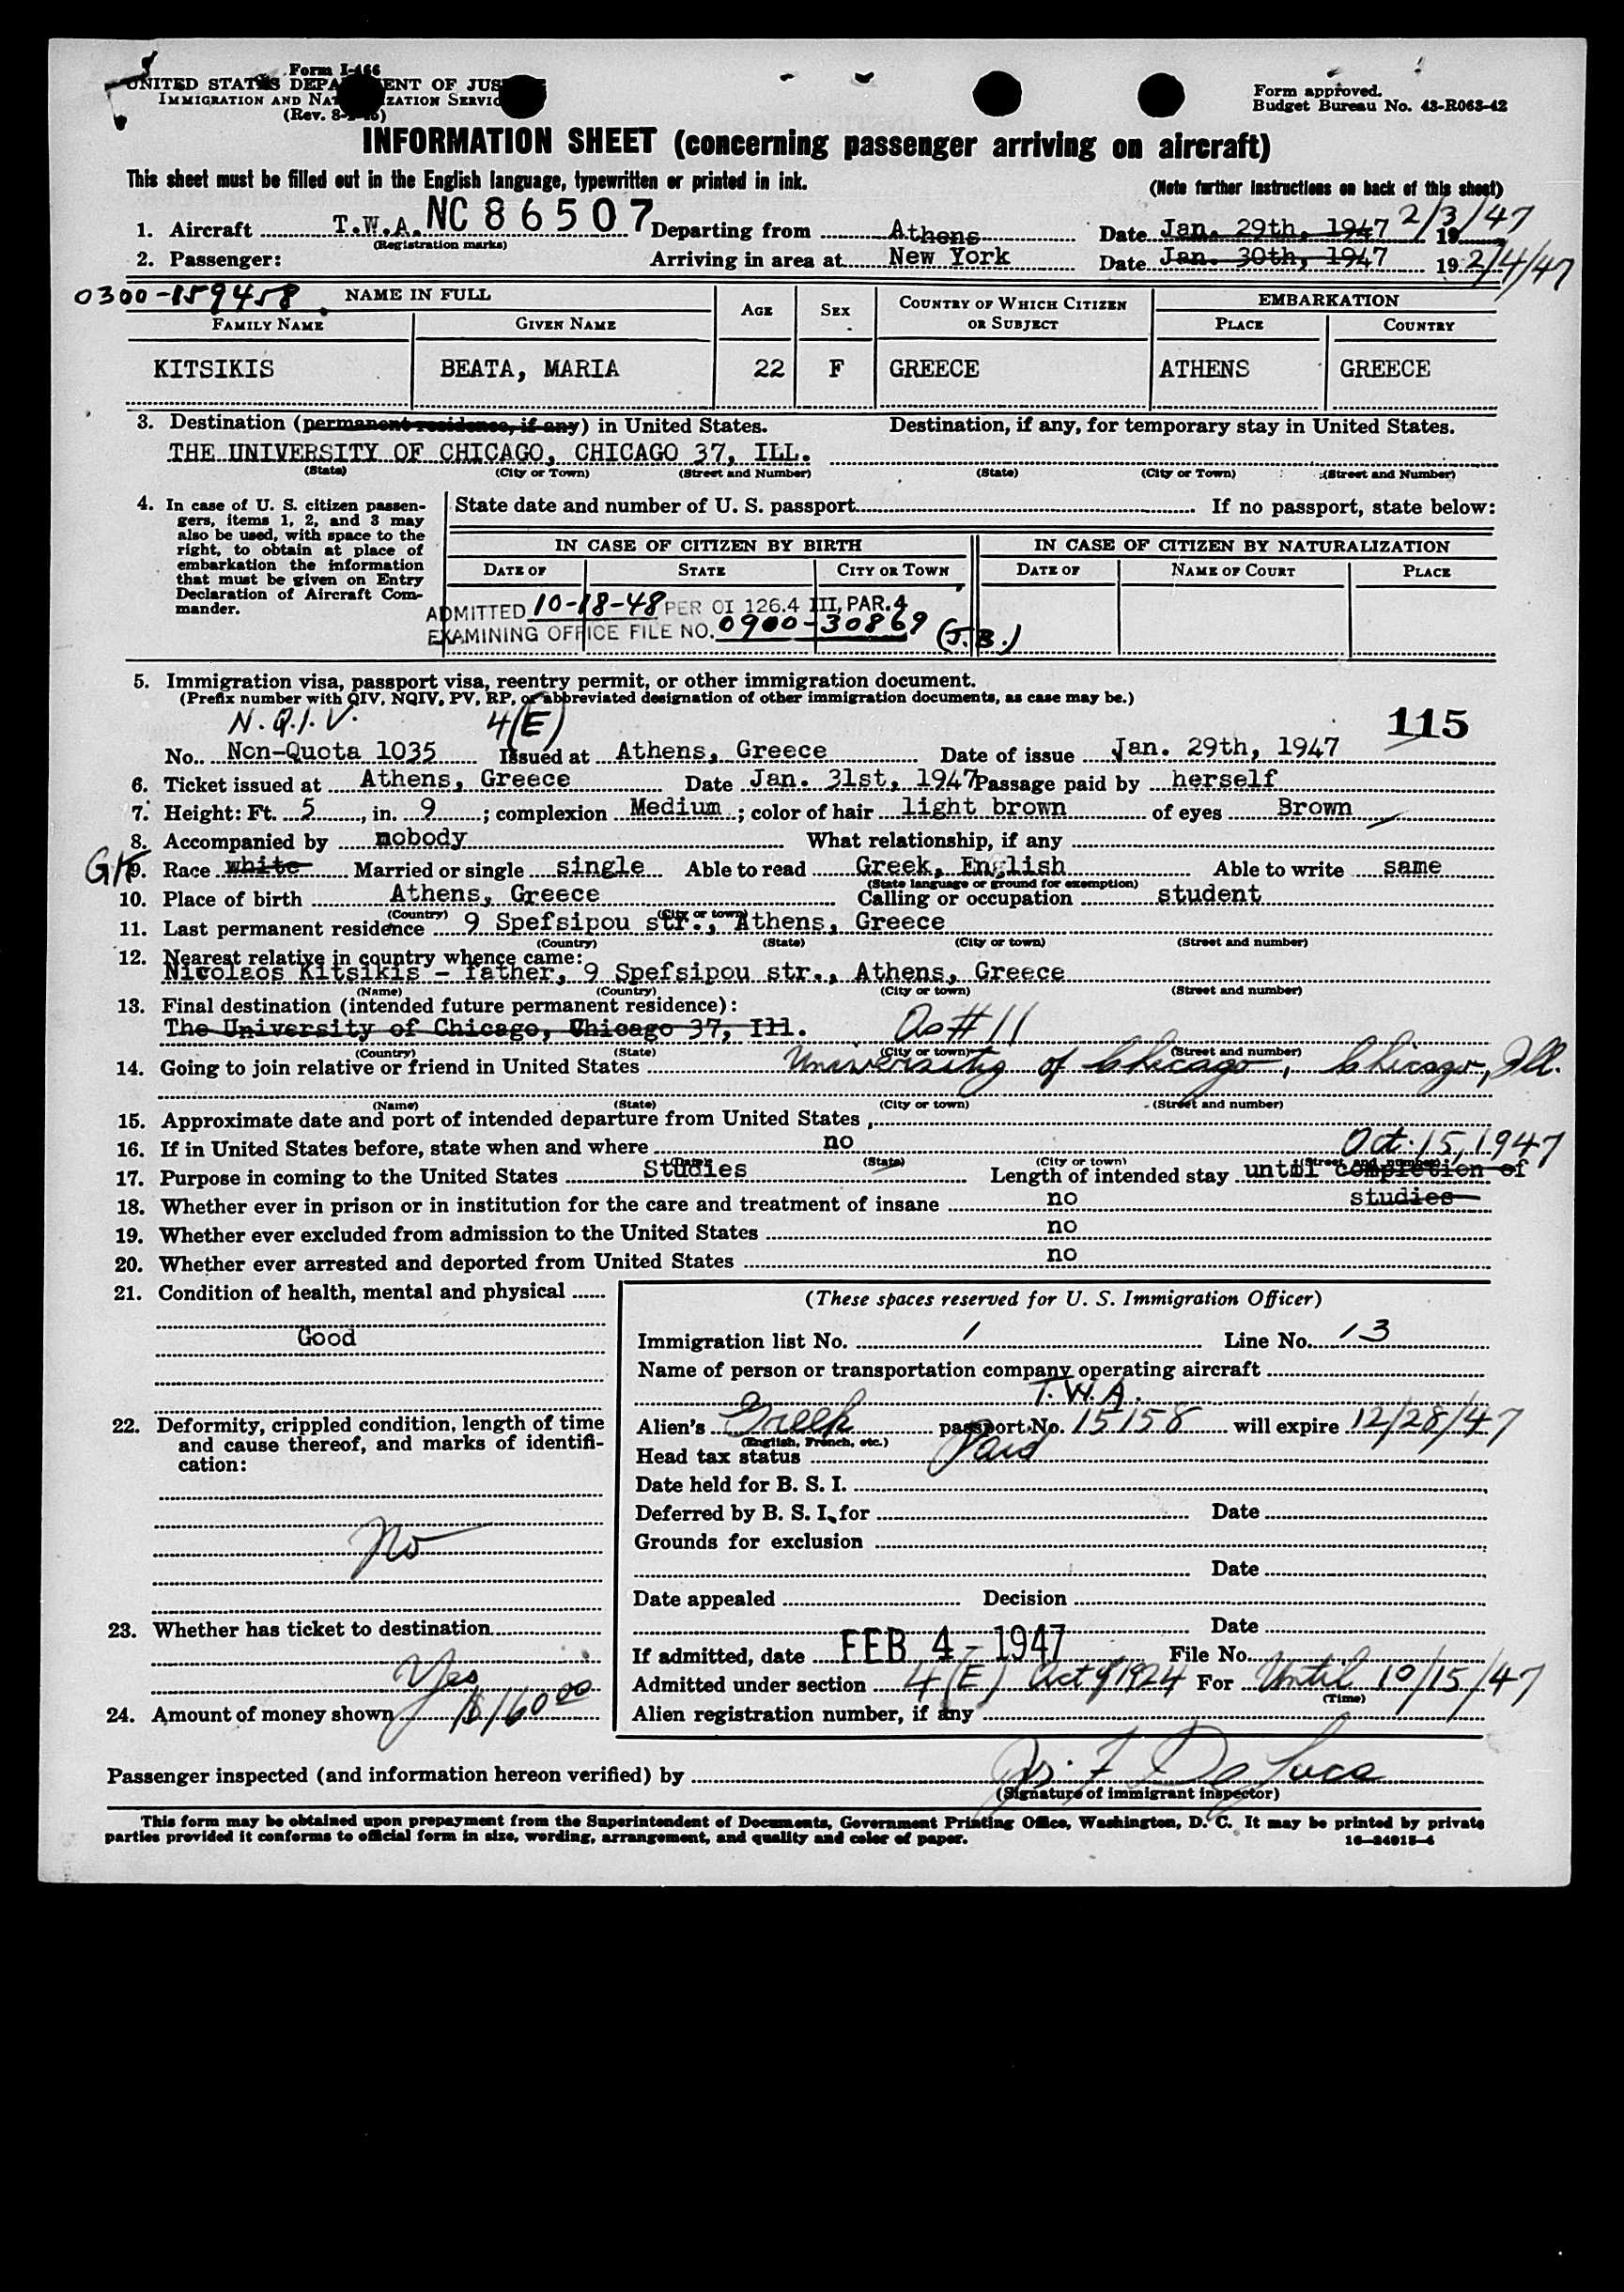 Form I-466
UNITED STATES DEPA ENT OF JUS
IMMIGRATION AND NAT ZATION SERVIC
(Rev. 8- )
Form approved.
Budget Bureau No. 43-R063-42
INFORMATION SHEET (concerning passenger arriving on aircraft)
This sheet must be filled out in the English language, typewritten or printed in ink.
(Note further instructions on back of this sheet)
1. Aircraft T.W.A. NC 86507 Departing from Athens Date Jan. 29th, 1947 19 2/3/47
(Registration marks)
2. Passenger: Arriving in area at New York Date Jan. 30th, 1947 19 2/4/47
0300-159458
NAME IN FULL AGE SEX COUNTRY OF WHICH CITIZEN OR SUBJECT EMBARKATION
FAMILY NAME GIVEN NAME PLACE COUNTRY
KITSIKIS BEATA, MARIA 22 F GREECE ATHENS GREECE
3. Destination (permanent residence, if any) in United States. Destination, if any, for temporary stay in United States.
THE UNIVERSITY OF CHICAGO, CHICAGO 37, ILL.
(State) (City or Town) (Street and Number) (State) (City or Town) (Street and Number)
4. In case of U. S. citizen passen-
gers, items 1, 2, and 3 may
also be used, with space to the
right, to obtain at place of
embarkation the information
that must be given on Entry
Declaration of Aircraft Com-
mander.
State date and number of U. S. passport If no passport, state below:
IN CASE OF CITIZEN BY BIRTH IN CASE OF CITIZEN BY NATURALIZATION
DATE OF STATE CITY OR TOWN DATE OF NAME OF COURT PLACE
ADMITTED 10-18-48 PER OI 126.4 III, PAR. 4
EXAMINING OFFICE FILE NO. 0900-30869 (J.B.)
5. Immigration visa, passport visa, reentry permit, or other immigration document.
(Prefix number with QIV, NQIV, PV, RP, or abbreviated designation of other immigration documents, as case may be.)
N.Q.I.V. 4(E) 115
No. Non-Quota 1035 Issued at Athens, Greece Date of issue Jan. 29th, 1947
6. Ticket issued at Athens, Greece Date Jan. 31st, 1947 Passage paid by herself
7. Height: Ft. 5, in. 9; complexion Medium; color of hair light brown of eyes Brown
8. Accompanied by nobody What relationship, if any
GK 9. Race white Married or single single Able to read Greek, English Able to write same
(State language or ground for exemption)
10. Place of birth Athens, Greece Calling or occupation student
(Country) (City or town)
11. Last permanent residence 9 Spefsipou str., Athens, Greece
(Country) (State) (City or town) (Street and number)
12. Nearest relative in country whence came:
Nicolaos Kitsikis - father, 9 Spefsipou str., Athens, Greece
(Name) (Country) (City or town) (Street and number)
13. Final destination (intended future permanent residence):
The University of Chicago, Chicago 37, Ill. As # 11
(Country) (State) (City or town) (Street and number)
14. Going to join relative or friend in United States University of Chicago, Chicago, Ill.
(Name) (State) (City or town) (Street and number)
15. Approximate date and port of intended departure from United States
16. If in United States before, state when and where no Oct. 15, 1947
(Date) (State) (City or town) (Street and number)
17. Purpose in coming to the United States Studies Length of intended stay until completion of
studies
18. Whether ever in prison or in institution for the care and treatment of insane no
19. Whether ever excluded from admission to the United States no
20. Whether ever arrested and deported from United States no
21. Condition of health, mental and physical
Good
22. Deformity, crippled condition, length of time
and cause thereof, and marks of identifi-
cation:
No
23. Whether has ticket to destination
Yes
24. Amount of money shown $160.00
(These spaces reserved for U. S. Immigration Officer)
Immigration list No. 1 Line No. 13
Name of person or transportation company operating aircraft
T.W.A.
Alien's Greek passport No. 15158 will expire 12/28/47
(English, French, etc.)
Head tax status Paid
Date held for B. S. I.
Deferred by B. S. I. for Date
Grounds for exclusion
Date
Date appealed Decision
Date
If admitted, date FEB 4 - 1947 File No.
Admitted under section 4(E) Act of 1924 For Until 10/15/47
(Time)
Alien registration number, if any
Passenger inspected (and information hereon verified) by F De Luca
(Signature of immigrant inspector)
This form may be obtained upon prepayment from the Superintendent of Documents, Government Printing Office, Washington, D. C. It may be printed by private
parties provided it conforms to official form in size, wording, arrangement, and quality and color of paper. 16-24015-4